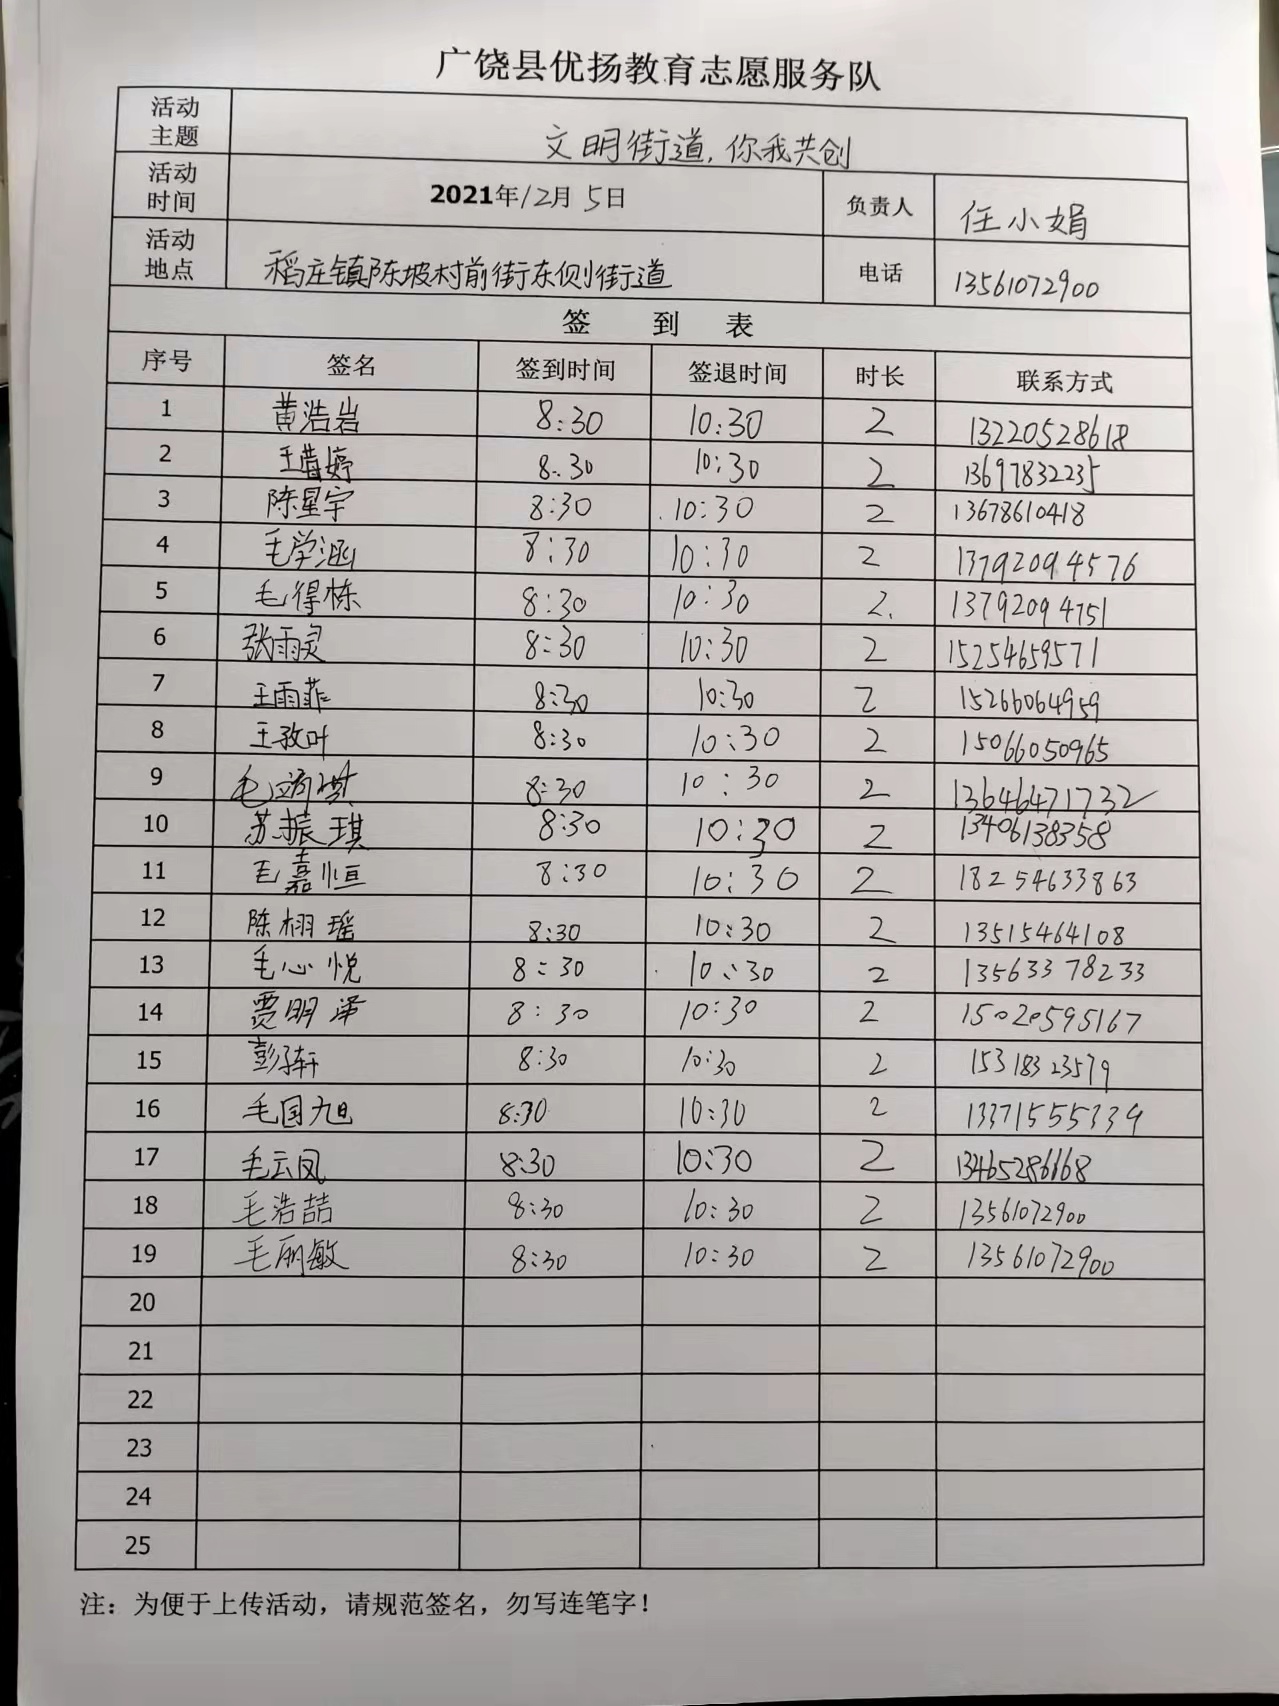 广饶县优扬教育志愿服务队
活动主题 文明街道,你我共创
活动时间 2021年12月5日 负责人 任小娟
活动地点 稻庄镇陈坡村前街东侧街道 电话 13561072900
签 到 表
序号 签名 签到时间 签退时间 时长 联系方式
1 黄浩岩 8:30 10:30 2 13220528618
2 王婷 8:30 10:30 2 13697832235
3 陈星宇 8:30 10:30 2 13678610418
4 毛学涵 8:30 10:30 2 13792094576
5 毛得栋 8:30 10:30 2 13792094751
6 张雨灵 8:30 10:30 2 15254659571
7 王雨菲 8:30 10:30 2 15266064959
8 王孜叶 8:30 10:30 2 15066050965
9 毛 8:30 10:30 2 13646471732
10 苏振琪 8:30 10:30 2 13406138358
11 毛嘉恒 8:30 10:30 2 18254633863
12 陈栩瑶 8:30 10:30 2 13515464108
13 毛心悦 8:30 10:30 2 13563378233
14 贾明泽 8:30 10:30 2 15020595167
15 彭子轩 8:30 10:30 2 15318323579
16 毛国旭 8:30 10:30 2 13371555339
17 毛云凤 8:30 10:30 2 13465286168
18 毛浩喆 8:30 10:30 2 13561072900
19 毛丽敏 8:30 10:30 2 13561072900
20
21
22
23
24
25
注:为便于上传活动,请规范签名,勿写连笔字!